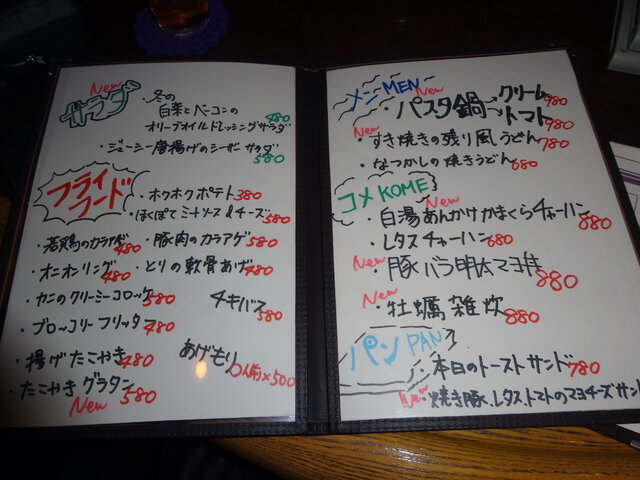 New
サラダ
・冬の
白菜とベーコンの
オリーブオイルドレッシングサラダ 480
・ジューシー唐揚げのシーザーサラダ 580
フライ
フード
・ホクホクポテト 380
・ほくほくポテトミートソース&チーズ 580
・若鶏のカラアゲ 480
・豚肉のカラアゲ 580
・オニオンリング 480
・とりの軟骨あげ 480
・カニのクリーミーコロッケ 580
チキバス 580
・ブロッコリーフリッター 480
・揚げたこやき 480
あげもり
〇人前×500
・たこやきグラタン 580
New
メニMEN
New
・パスタ鍋→クリーム 980
→トマト 980
New
・すき焼きの残り風うどん 780
・なつかしの焼きうどん 680
コメ KOME
New
・白湯あんかけかまくらチャーハン 880
・レタスチャーハン 680
New
・豚バラ明太マヨ丼 880
New
・牡蠣雑炊 880
パン PAN
・本日のトーストサンド 780
New
・焼き豚、レタス、トマトのマヨチーズサン